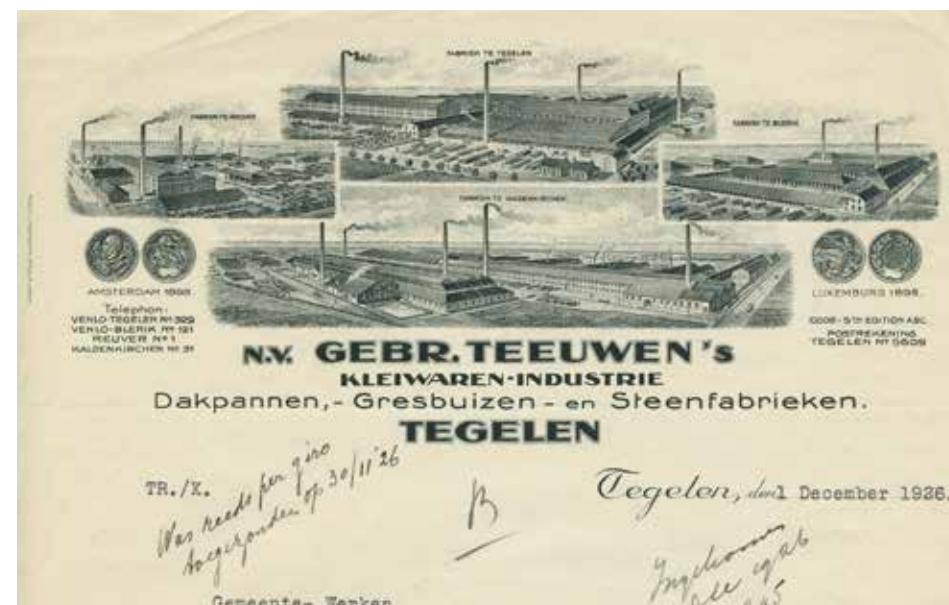 FABRIEK TE TEGELEN
FABRIEK TE REUVER
FABRIEK TE BLERIK
FABRIEK TE KALDENKIRCHEN
AMSTERDAM
LUXEMBURG
Telephon:
VENLO-TEGELEN Nº 329
VENLO-BLERIK Nº 191
REUVER Nº 1
KALDENKIRCHEN Nº 31
CODE-5TH EDITION ABC
POSTREKENING
TEGELEN Nº 5609
N.V. GEBR. TEEUWEN's
KLEIWAREN-INDUSTRIE
Dakpannen,- Gresbuizen - en Steenfabrieken.
TEGELEN
TR./X.
Was reeds per giro
toegezonden op 30/11 '26
B
Tegelen, den 1 December 1926.
Ingekomen
1926
Gemeente- Werken